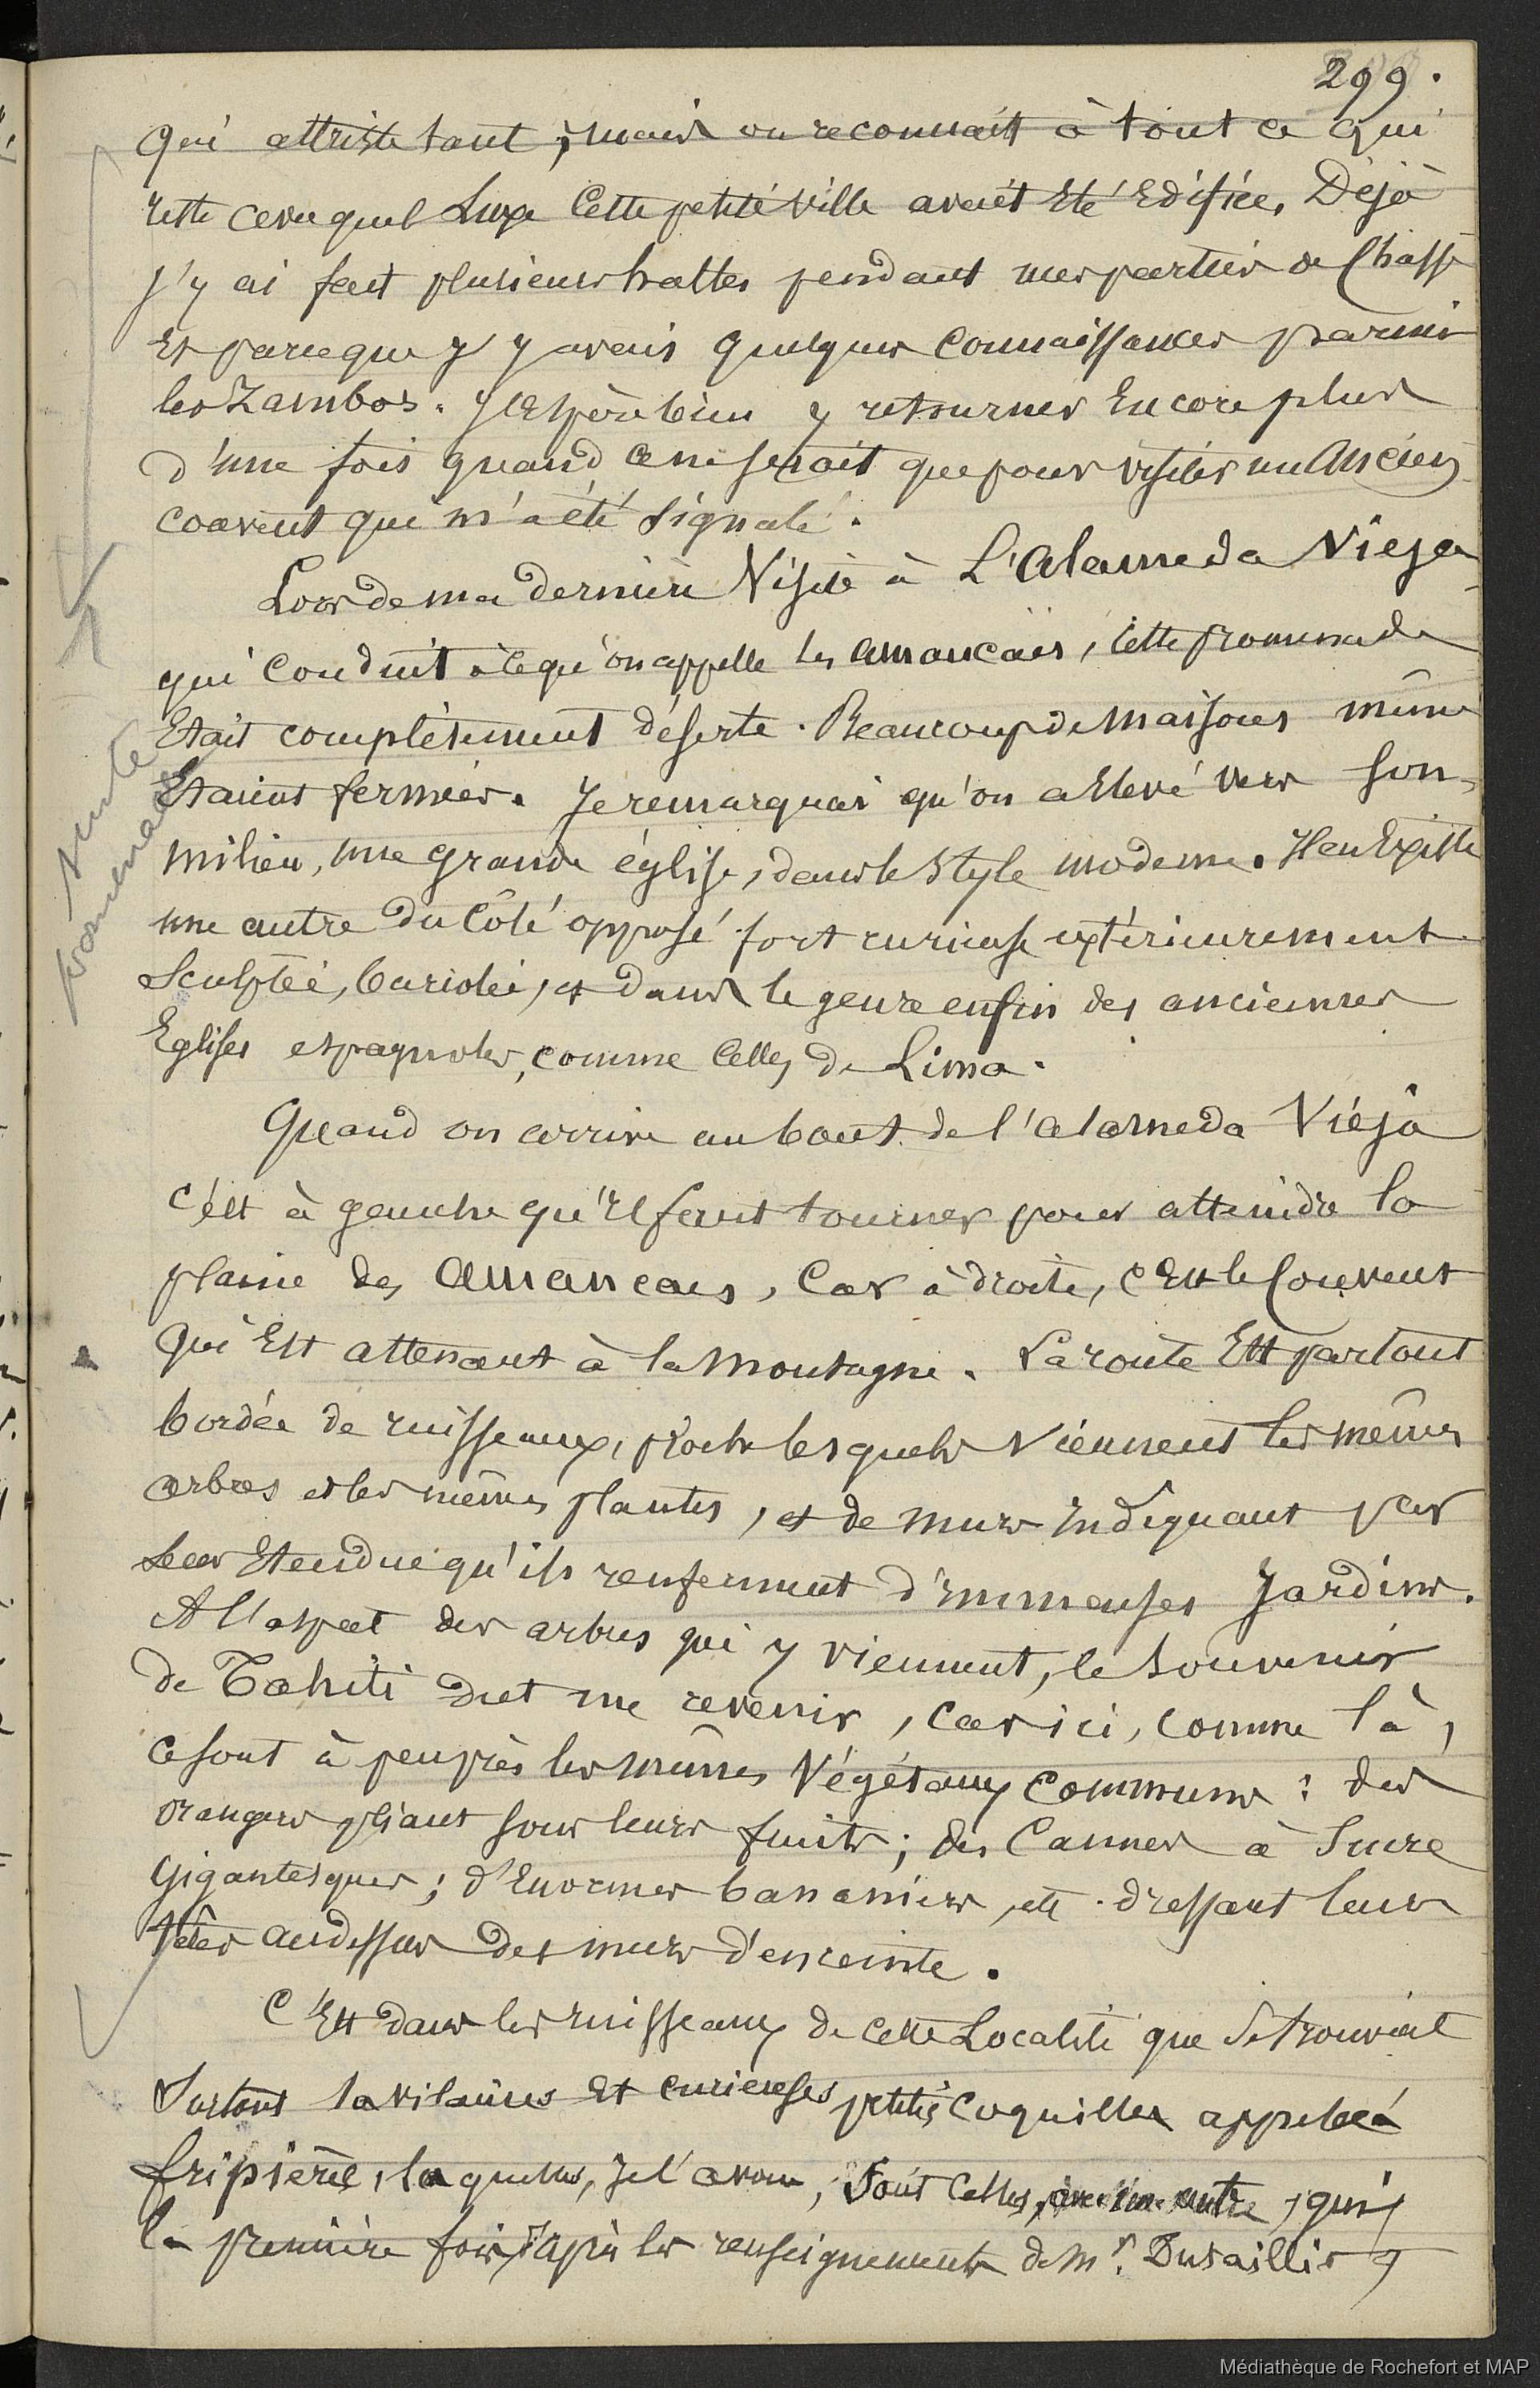 299.
qui attriste tant ; mais on reconnait à tout ce qui
reste avec quel Luxe Cette petite ville avait Eté Edifiée, Déjà
j'y ai fait plusieurs haltes pendant mes parties de Chasse
Et parceque j'y avais quelques Connaissances parmi
les Zambos. J'Espère bien y retourner Encore plus
d'une fois quand ce ne serait que pour visiter un Ancien
couvent qui m'a été signalé.
Lors de ma dernière Visite à L'Alameda Vieja
qui Conduit à ce qu'on appelle les Amancaës, cette promenade
Etait complètement déserte. Beaucoup de Maisons même
Etaient fermées. Je remarquai qu'on a Elevé vers son
milieu, une grande église, dans le Style moderne. Il en Existe
une autre du Côté opposé fort curieuse extérieurement
Sculptée, bariolée, et dans le genre enfin des anciennes
Eglises espagnoles, comme Celles de Lima.
Quand on arrive au bout de l'Alameda Viéja
c'est à gauche qu'il faut tourner pour atteindre la
plaine des Amancaes, Car à droite, c'Est le Couvent
qui Est attenant à la Montagne. La route Est partout
bordée de ruisseaux, près lesquels viennent les mêmes
arbres et les mêmes plantes, et de murs indiquant par
leur Etendue qu'ils renferment d'immenses Jardins.
A l'aspect des arbres qui y viennent, le Souvenir
de Tahiti dut me revenir, Car ici, comme là,
ce sont à peu près les mêmes Végétaux Communs : des
orangers pliant sous leurs fruits ; des Cannes à Sucre
Gigantesques ; d'Enormes bananiers, etc. dressant leurs
têtes au dessus des murs d'enceinte.
C'Est dans les ruisseaux de cette Localité que se trouvait
Surtout la vilaines Et curieuses petites Coquilles appelée
fripière, laquelles, je l'avoue, sont celles, avec une autre, qui,
la première fois, d'après les renseignements de Mr. Dusaillis
route
promenade